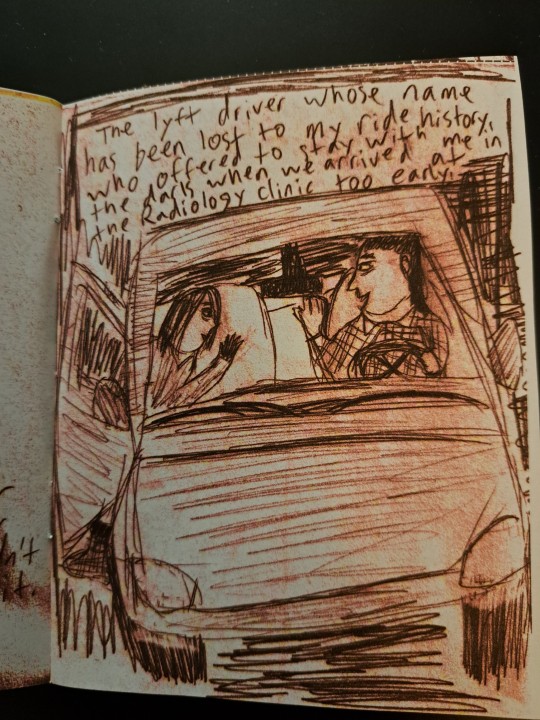 The lyft driver whose name
has been lost to my ride history,
who offered to stay with me in
the dark when we arrived at
the Radiology clinic too early.
n't
it.